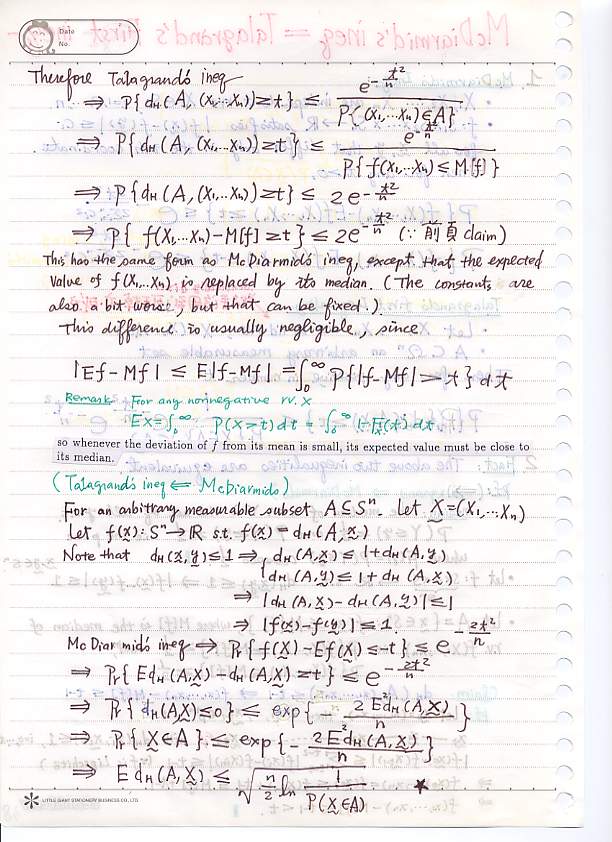 Date
No.
Therefore Talagrand's ineq
⇒ P{d_H(A, (X₁,…Xₙ)) ≥ t} ≤ e^{-t²/n} / P{(X₁,…Xₙ)∈A}
⇒ P{d_H(A, (X₁,…Xₙ)) ≥ t} ≤ e^{-t²/n} / P{f(X₁,…Xₙ) ≤ M[f]}
⇒ P{d_H(A, (X₁,…Xₙ)) ≥ t} ≤ 2e^{-t²/n}
⇒ P{f(X₁,…Xₙ) - M[f] ≥ t} ≤ 2e^{-t²/n} (∵ 前頁 claim)
This has the same form as McDiarmid's ineq, except that the expected
value of f(X₁,…Xₙ) is replaced by its median. (The constants are
also a bit worse, but that can be fixed.)
This difference is usually negligible, since
|Ef - Mf| ≤ E|f - Mf| = ∫₀^∞ P{|f - Mf| > t} dt
Remark For any nonnegative rv. X
EX = ∫₀^∞ P(X > t) dt = ∫₀^∞ 1 - F_X(t) dt
so whenever the deviation of f from its mean is small, its expected value must be close to
its median.
(Talagrand's ineq ⇐ McDiarmid's)
For an arbitrary measurable subset A ⊆ Sⁿ. Let X = (X₁,…,Xₙ)
Let f(x): Sⁿ → ℝ s.t. f(x) = d_H(A, x)
Note that d_H(x, y) ≤ 1 ⇒ { d_H(A, x) ≤ 1 + d_H(A, y)
d_H(A, y) ≤ 1 + d_H(A, x)
⇒ |d_H(A, x) - d_H(A, y)| ≤ 1
⇒ |f(x) - f(y)| ≤ 1.
McDiarmid's ineq ⇒ Pr{f(X) - Ef(X) ≤ -t} ≤ e^{-2t²/n}
⇒ Pr{Ed_H(A, X) - d_H(A, X) ≥ t} ≤ e^{-2t²/n}
⇒ Pr{d_H(A, X) ≤ 0} ≤ exp{- 2E²d_H(A, X) / n}
⇒ Pr{X ∈ A} ≤ exp{- 2E²d_H(A, X) / n}
⇒ E d_H(A, X) ≤ √(n/2 ln 1/P(X∈A)) ★
LITTLE GIANT STATIONERY BUSINESS CO., LTD.